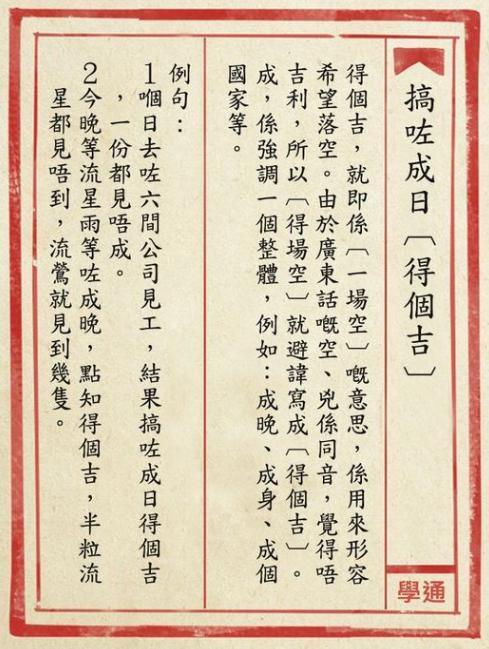 搞咗成日﹝得個吉﹞
得個吉，就即係﹝一場空﹞嘅意思，係用來形容
希望落空。由於廣東話嘅空、兇係同音，覺得唔
吉利，所以﹝得場空﹞就避諱寫成﹝得個吉﹞。
成，係強調一個整體，例如：成晚、成身、成個
國家等。
例句：
1嗰日去咗六間公司見工，結果搞咗成日得個吉
，一份都見唔成。
2今晚等流星雨等咗成晚，點知得個吉，半粒流
星都見唔到，流鶯就見到幾隻。
學通